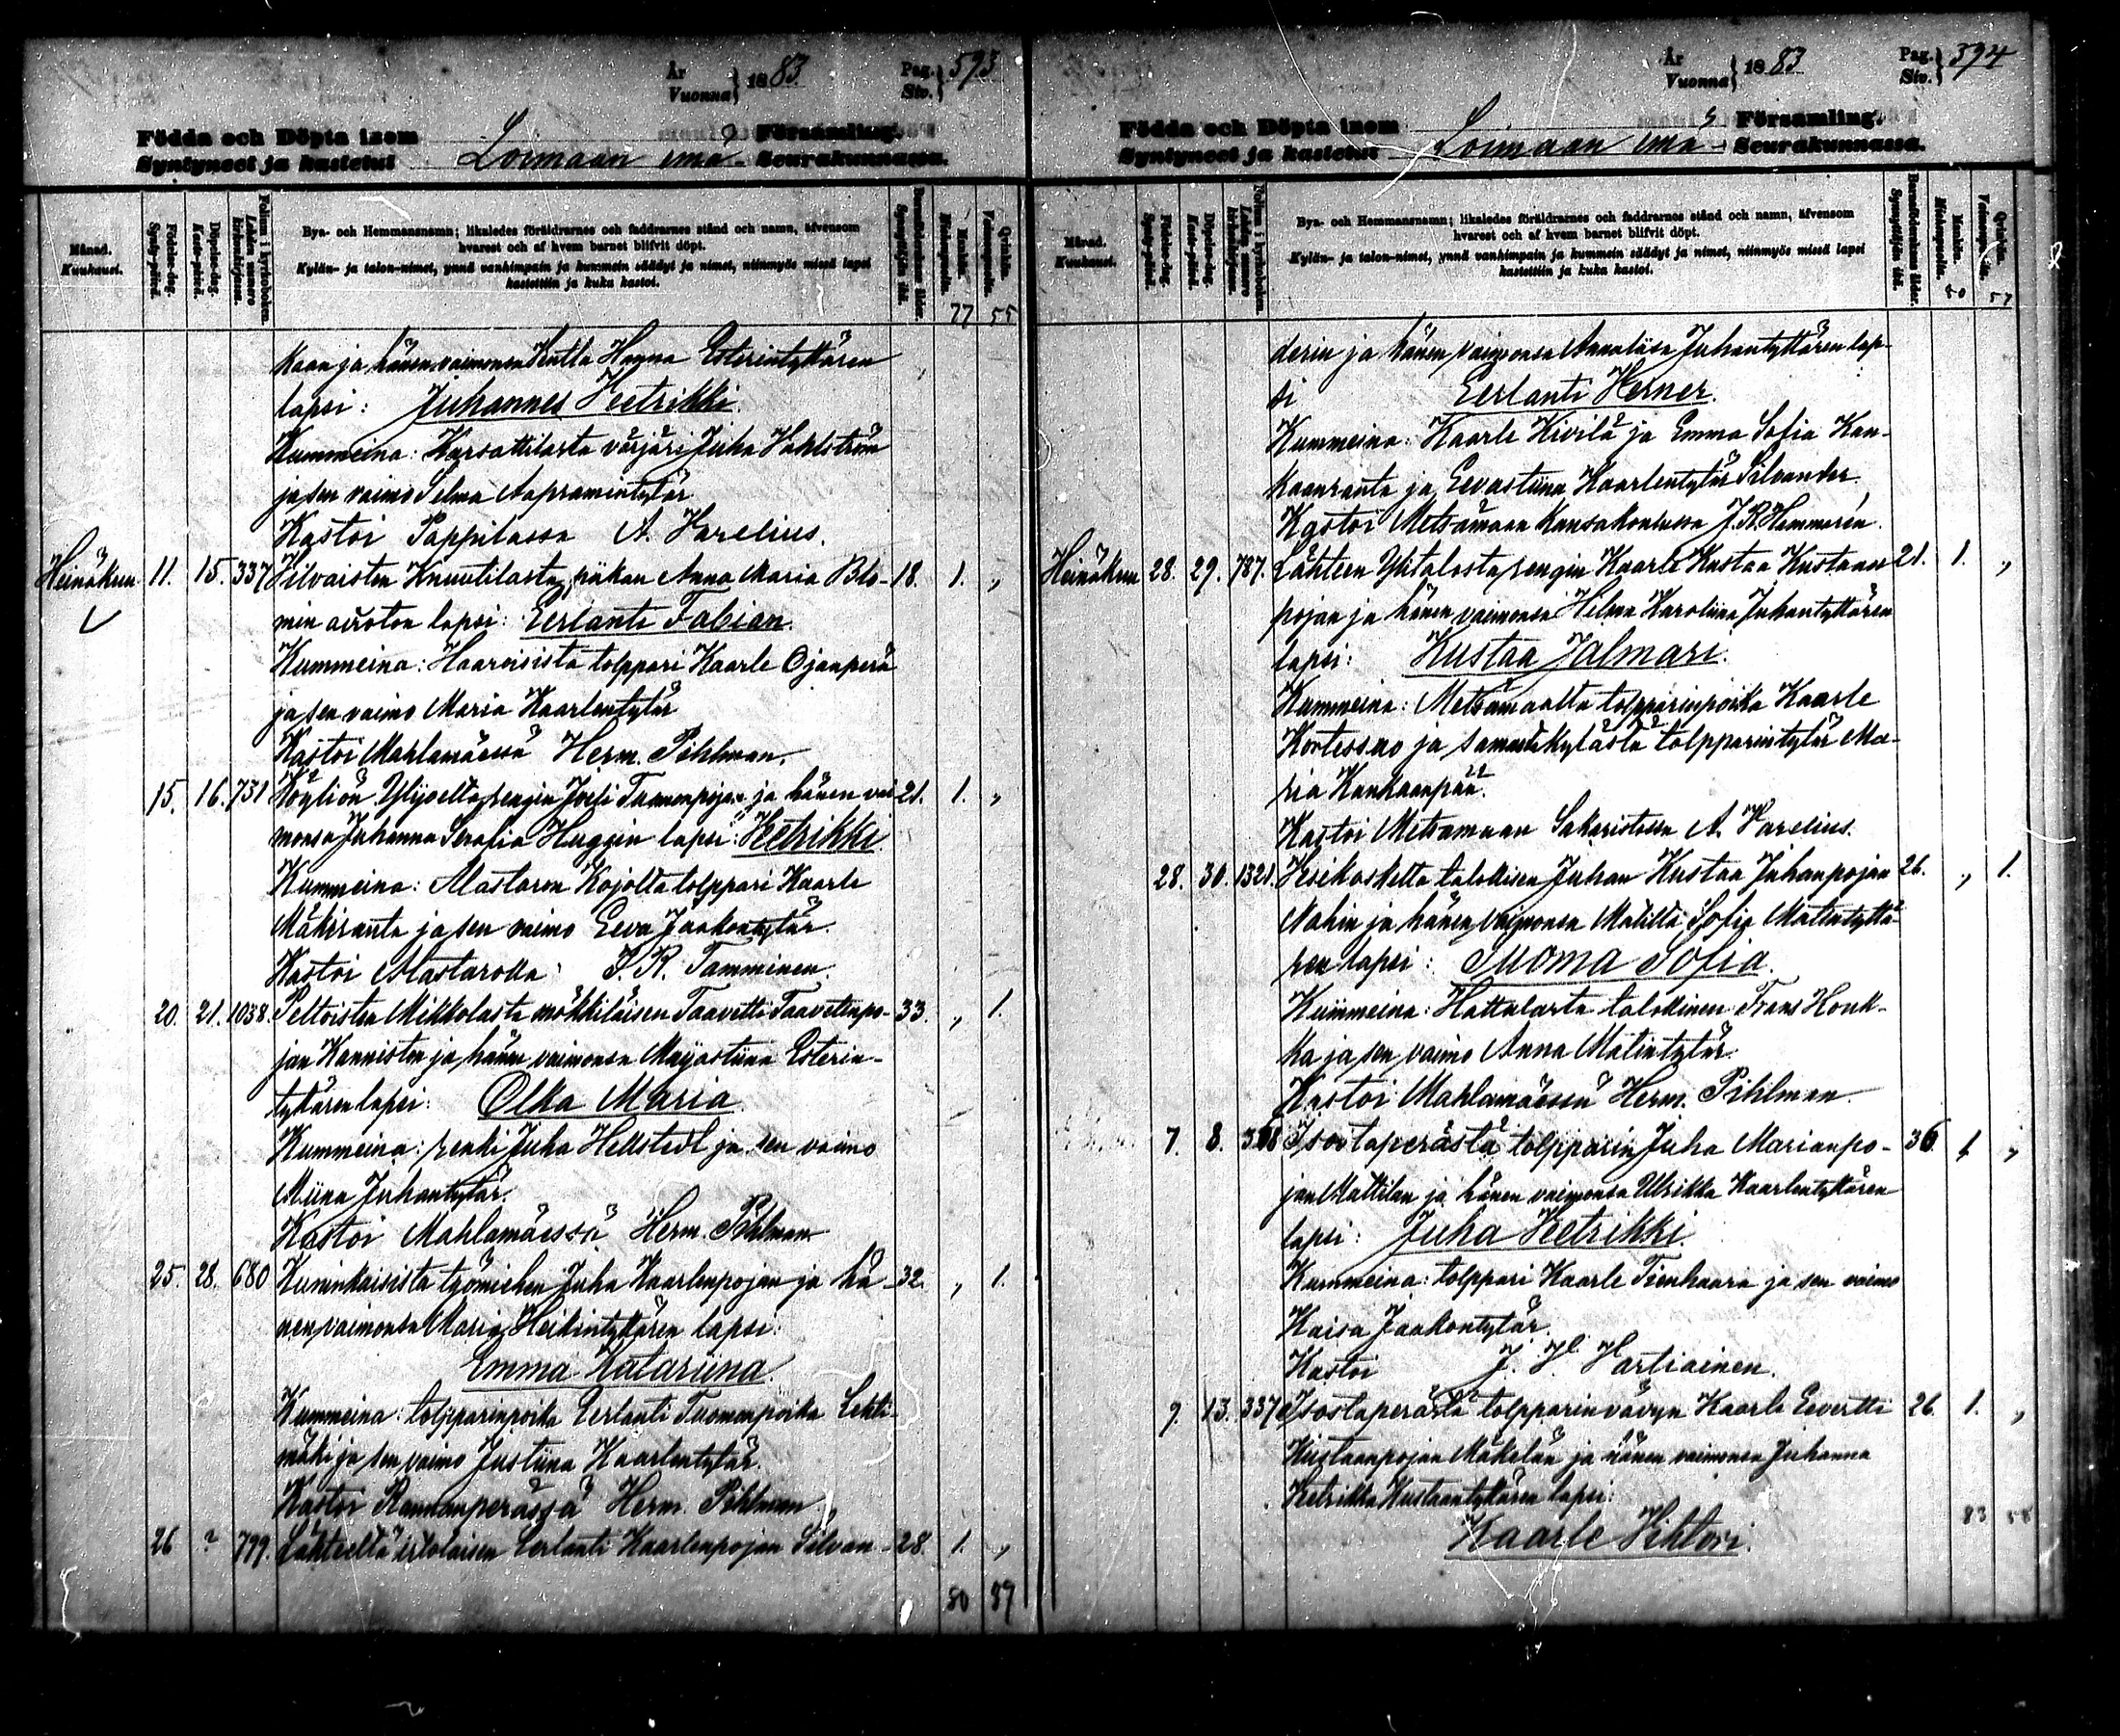 År
Vuonna } 1883
Pag.
Siv. } 593
Födda och Döpta inom
Syntyneet ja kastetut Loimaan emä Församling.
Seurakunnassa.
Månad.
Kuukausi.
Födelse-dag.
Synty-päivä.
Döpelse-dag.
Kaste-päivä.
Folium i kyrkoboken.
Lehden numero kirkonkirjassa.
Bya- och Hemmansnamn; likaledes föräldrarnes och faddrarnes stånd och namn, äfvensom
hvarest och af hvem barnet blifvit döpt.
Kylän- ja talon-nimet, ynnä vanhimpain ja kummein säädyt ja nimet, niinmyös missä lapsi
kastettiin ja kuka kastoi.
Barnaföderskans ålder.
Synnyttäjän ikä.
Mankön.
Miehenpuolia.
Qvinkön.
Vaimonpuolia.
77 55
kaan ja hänen vaimonsa Hanna Esterintyttären
lapsi: Juhannes Vretrikki
Kummeina: Karsattilasta värjäri Juha Vahlström
ja sen vaimo Selma Aapramintytär
Kastoi Pappilassa A. Varelius.
Heinäkuu 11. 15. 337 Vilvaisten Knuutilasta, piikan Anna Maria Blo- 18. 1. "
min aviotoin lapsi: Eerlanti Fabian.
Kummeina: Haaroisista tolppari Kaarle Ojanperä
ja sen vaimo Maria Kaarlentytär
Kastoi Mahlamäessä Herm. Pihlman.
15. 16. 731 Köyliön Ylijoelta, rengin Joosi Tuomenpojan ja hänen vai- 21. 1. "
monsa Juhanna Serafia Huggin lapsi: Vretrikki
Kummeina: Alastaron Kojolta tolppari Kaarle
Mäkiranta ja sen vaimo Eeva Jaakontytär.
Kastoi Alastarolla F. R. Tamminen.
20. 21. 1038. Peltoisten Mikkolasta mökkiläisen Taavetti Taavetinpo- 33. " 1.
jan Kanniston ja hänen vaimonsa Maijastiina Esterin-
tyttären lapsi: Olka Maria
Kummeina: renki Juha Hellstedt ja sen vaimo
Miina Juhantytär.
Kastoi Mahlamäessä Herm. Pihlman
25. 28. 680 Kuninkaisista työmiehen Juha Kaarlenpojan ja hä- 32. " 1.
nen vaimonsa Maria Heikintyttären lapsi:
Emma Katariina.
Kummeina: tolpparinpoika Eerlanti Tuomenpoika Lehti-
mäki ja sen vaimo Justiina Kaarlentytär.
Kastoi Raumanperässä Herm. Pihlman
26 ? 799. Lähteeltä itsolaisen Eerlanti Kaarlenpojan Silvan- 28. 1. "
80 57
År
Vuonna } 1883
Pag.
Siv. } 594
Födda och Döpta inom
Syntyneet ja kastetut Loimaan emä Församling.
Seurakunnassa.
Månad.
Kuukausi.
Födelse-dag.
Synty-päivä.
Döpelse-dag.
Kaste-päivä.
Folium i kyrkoboken.
Lehden numero kirkonkirjassa.
Bya- och Hemmansnamn; likaledes föräldrarnes och faddrarnes stånd och namn, äfvensom
hvarest och af hvem barnet blifvit döpt.
Kylän- ja talon-nimet, ynnä vanhimpain ja kummein säädyt ja nimet, niinmyös missä lapsi
kastettiin ja kuka kastoi.
Barnaföderskans ålder.
Synnyttäjän ikä.
Mankön.
Miehenpuolia.
Qvinkön.
Vaimonpuolia.
80 57
derin ja hänen vaimonsa Annaliisa Juhantyttären lap-
si Eerlanti Verner.
Kummeina: Kaarle Kivilä ja Emma Sofia Kan-
kaanranta ja Eevastiina Kaarlentytär Silvander.
Kastoi Metsämaan Kansakoulussa J. R. Hammarén.
Heinäkuu 28. 29. 787. Lähteen Ylitalosta, rengin Kaarle Kustaa Kustaan- 21. 1. "
pojan ja hänen vaimonsa Hilma Karoliina Juhantyttären
lapsi: Kustaa Jalmari.
Kummeina: Metsämaalta tolpparinpoika Kaarle
Kortessuo ja samasta kylästä tolpparintytär Ma-
ria Kankaanpää.
Kastoi Metsämaan Sakaristossa A. Varelius.
28. 30. 1321. Vesikoskelta talollisen Juhan Kustaa Juhanpojan 26. " 1.
Nahin ja hänen vaimonsa Matilta Sofia Matintyttä-
ren lapsi: Suoma Sofia.
Kummeina: Hattalasta talollinen Frans Honk-
ka ja sen vaimo Anna Matintytär.
Kastoi Mahlamäessä Herm. Pihlman
7. 8. 368 Isostaperästä tolpparin Juha Marianpo- 36. 1 "
jan Mattilan ja hänen vaimonsa Ulrikka Kaarlentyttären
lapsi: Juha Vretrikki.
Kummeina: tolppari Kaarle Tienhaara ja sen vaimo
Kaisa Jaakontytär.
Kastoi J. V. Vartiainen.
9. 13. 337 Isostaperästä tolpparinvävyn Kaarle Eevertti 26. 1. "
Kustaanpojan Mäkelän ja hänen vaimonsa Juhanna
Vretrikka Kustaantyttären lapsi:
Kaarle Vihtori.
83 58